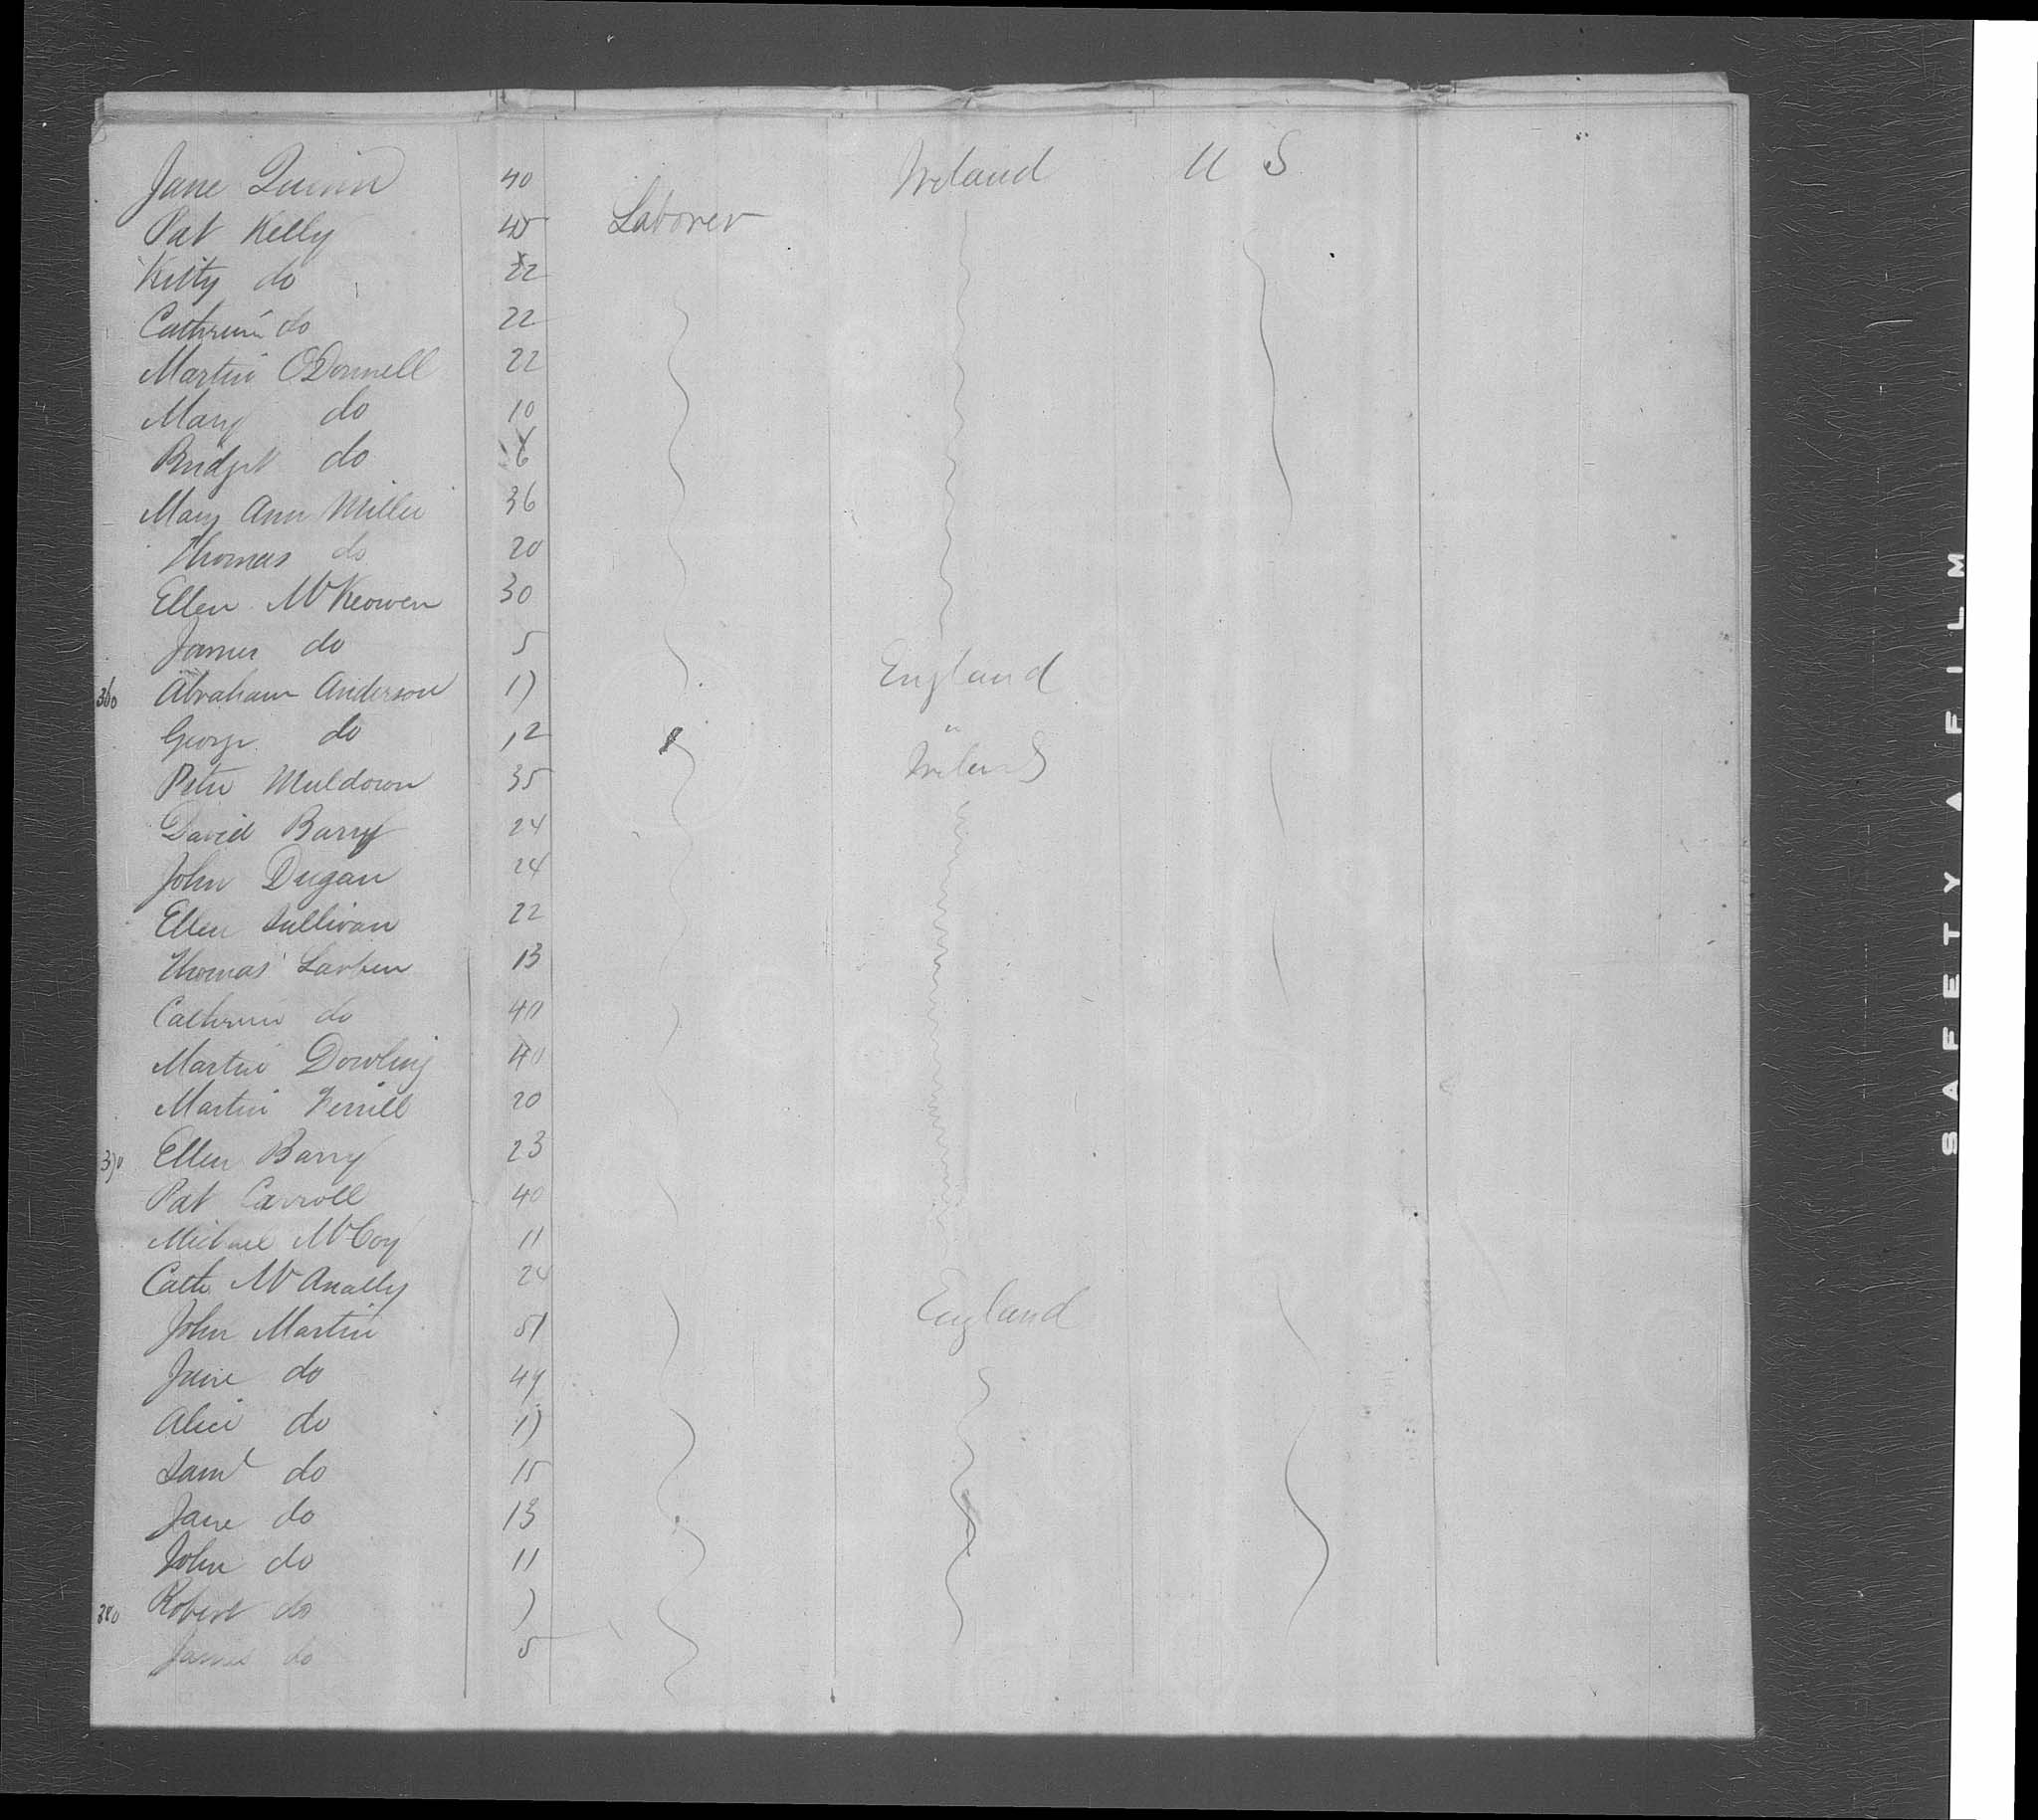 Jane Quinn 40 Ireland U S
Pat Kelly 45 Laborer
Kitty do 22
Cathrine do 22
Martin O'Donnell 22
Mary do 10
Bridget do 6
Mary Ann Miller 36
Thomas do 20
Ellen McKeowen 30
James do 5
360 Abraham Anderson 17 England
George do 12 "
Peter Muldown 35 Ireland
David Barry 24
John Dugan 24
Ellen Sullivan 22
Thomas Larken 13
Cathrine do 40
Martin Dowling 40
Martin 20
370 Ellen Barry 23
Pat Carroll 40
Michael McCoy 11
Cath McAnally 24
John Martin 51 England
Jane do 49
Alice do 17
Saml do 15
Jane do 13
John do 11
380 Robert do 7
James do 5
SAFETY A FILM